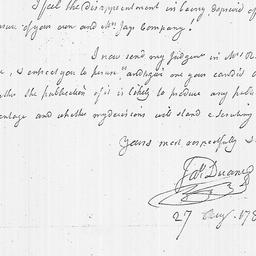 I feel the disappointment in being deprived of
of your own and Mrs Jays Company!
I now send my Judgment in Mrs
I entreat you to peruse, and give me your candid
the publication of it is likely to produce any
and whether my decisions will stand
Yours most respectfully
Jas Duane
27 Aug. 178